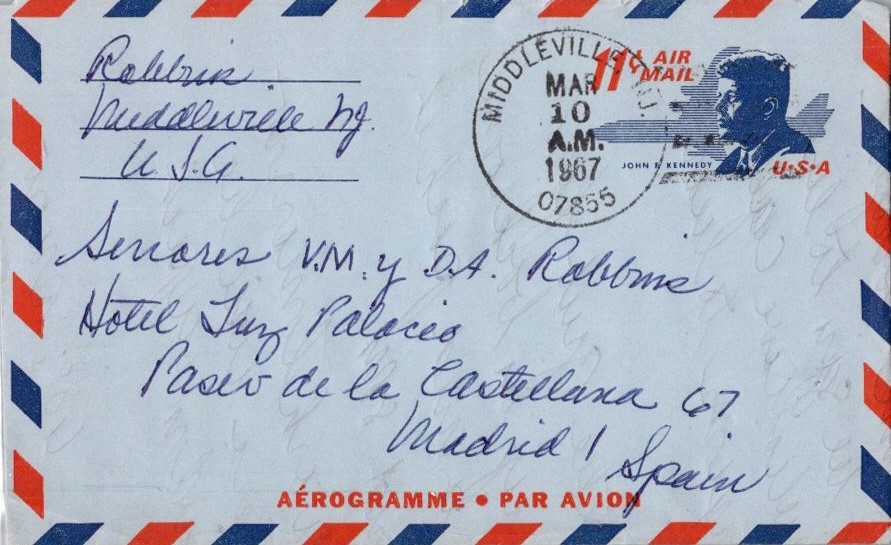 Robbins
Middleville NJ.
U.S.A.
MIDDLEVILLE, N.J.
MAR
10
A.M.
1967
07855
11¢ AIR
MAIL
JOHN F. KENNEDY
U·S·A
Senores V.M. y D.A. Robbins
Hotel Luz Palacio
Paseo de la Castellana 67
Madrid 1
Spain
AÉROGRAMME • PAR AVION